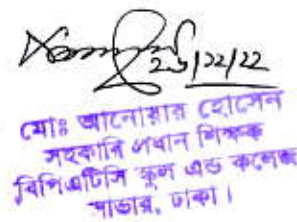 23/22/22
মোঃ আনোয়ার হোসেন
সহকারি প্রধান শিক্ষক
বিপিএটিসি স্কুল এন্ড কলেজ
সাভার, ঢাকা।